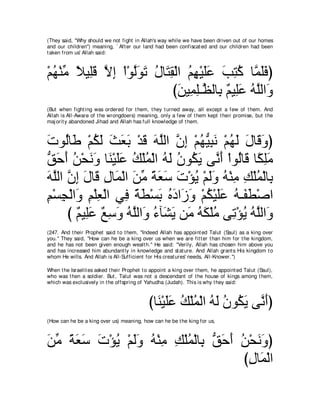 (They said, "Why should we not fight in Allah's way while we have been driven out of our homes
and our children'') meaning, ` After our land had been confiscated and our children had been
taken from us' Allah said:
فَلَمَّا كُتِبَ عَلَيْهِمُ الْقِتَالُ تَوَلَّوْاْ إِلاَّ قَلِيلاً مِّنْهُمْ
(وَاللَّهُ عَلِيمٌ بِالظَّـلِمِينَ
(But when fighting was ordered for them, they turned away, all except a few of them. And
Allah is All-Aware of the wrongdoers) meaning, only a few of them kept their promise, but the
majority abandoned Jihad and Allah has full knowledge of them.
(وَقَالَ لَهُمْ نَبِيُّهُمْ إِنَّ اللَّهَ قَدْ بَعَثَ لَكُمْ طَالُوتَ
مَلِكًا قَالُواْ أَنَّى يَكُونُ لَهُ الْمُلْكُ عَلَيْنَا وَنَحْنُ أَحَقُّ
بِالْمُلْكِ مِنْهُ وَلَمْ يُؤْتَ سَعَةً مِّنَ الْمَالِ قَالَ إِنَّ اللَّهَ
اصْطَفَـهُ عَلَيْكُمْ وَزَادَهُ بَسْطَةً فِي الْعِلْمِ وَالْجِسْمِ
وَاللَّهُ يُؤْتِى مُلْكَهُ مَن يَشَآءُ وَاللَّهُ وَسِعٌ عَلِيمٌ )
(247. And their Prophet said to them, "Indeed Allah has appointed Talut (Saul) as a king over
you.'' They said, "How can he be a king over us when we are fitter than him for the kingdom,
and he has not been given enough wealth.'' He said: "Verily, Allah has chosen him above you
and has increased him abundantly in knowledge and stature. And Allah grants His kingdom to
whom He wills. And Allah is All-Sufficient for His creatures' needs, All-Knower.'')
When the Israelites asked their Prophet to appoint a king over them, he appointed Talut (Saul),
who was then a soldier. But, Talut was not a descendant of the house of kings among them,
which was exclusively in the offspring of Yahudha (Judah). This is why they said:
(أَنَّى يَكُونُ لَهُ الْمُلْكُ عَلَيْنَا)
(How can he be a king over us) meaning, how can he be the king for us,
(وَنَحْنُ أَحَقُّ بِالْمُلْكِ مِنْهُ وَلَمْ يُؤْتَ سَعَةً مِّنَ
الْمَالِ)